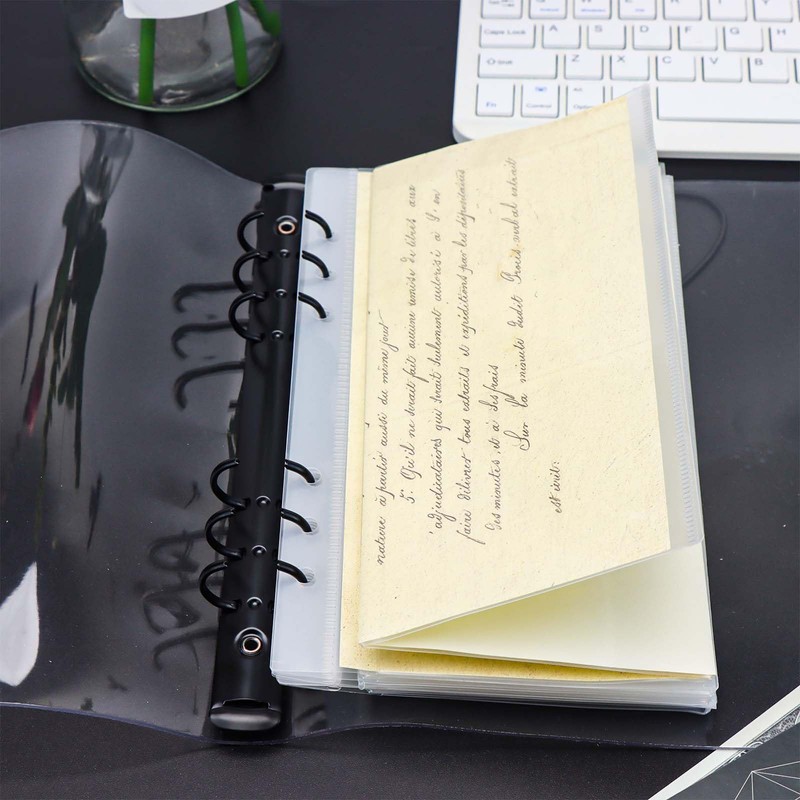 Caps Lock A S D F G H
Shift Z X C V B N
Fn Control Alt
nature à partir aussi du même jour
5° Qu'il ne serait fait aucune remise de titres aux
adjudicataires qui serait seulement autorisé à s'en
faire délivrer tous extraits et expéditions par les dépositaires
des minutes, et à ses frais
Sur la minute dudit Procès verbal extrait
est écrit: